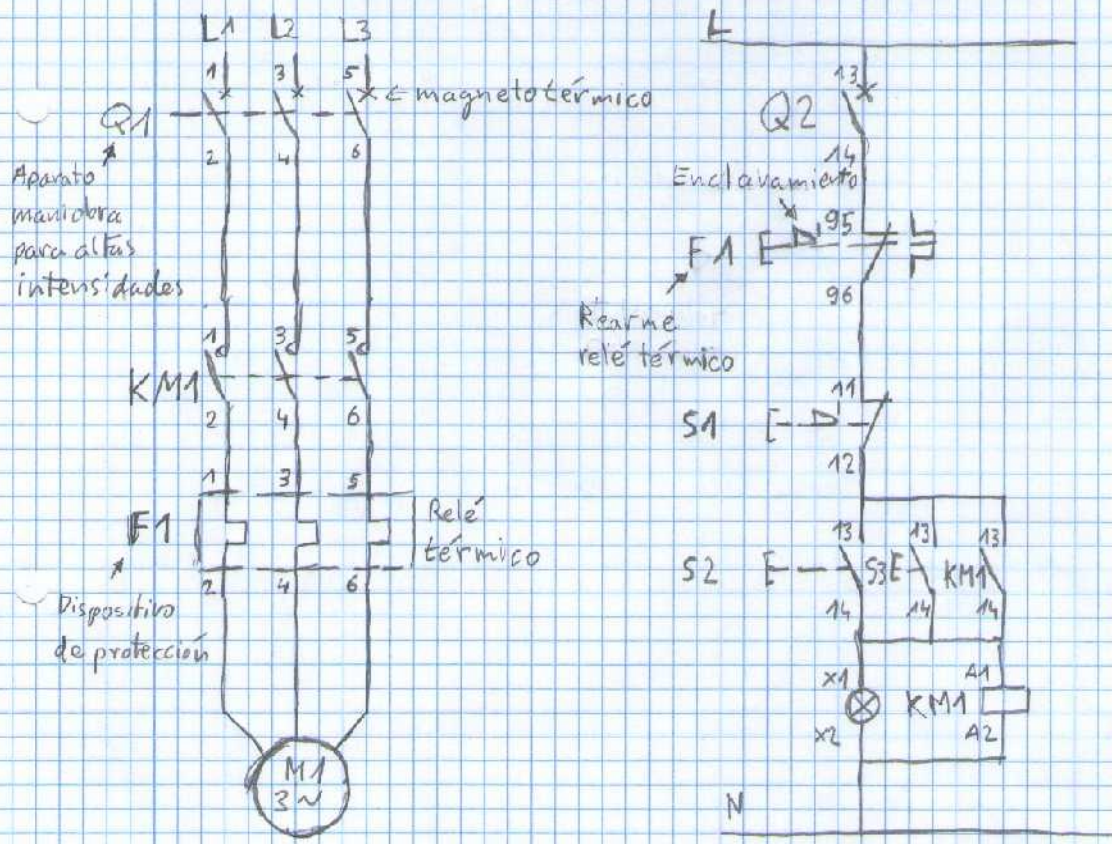 L1 L2 L3
1 3 5
← magnetotérmico
Q1
2 4 6
Aparato
maniobra
para altas
intensidades
1 3 5
KM1
2 4 6
1 3 5
F1
Relé
térmico
2 4 6
Dispositivo
de protección
M1
3~
L
13
Q2
14
Enclavamiento
95
F1
96
Rearme
relé térmico
11
S1
12
13 13 13
S2 S3 KM1
14 14 14
X1 A1
KM1
X2 A2
N